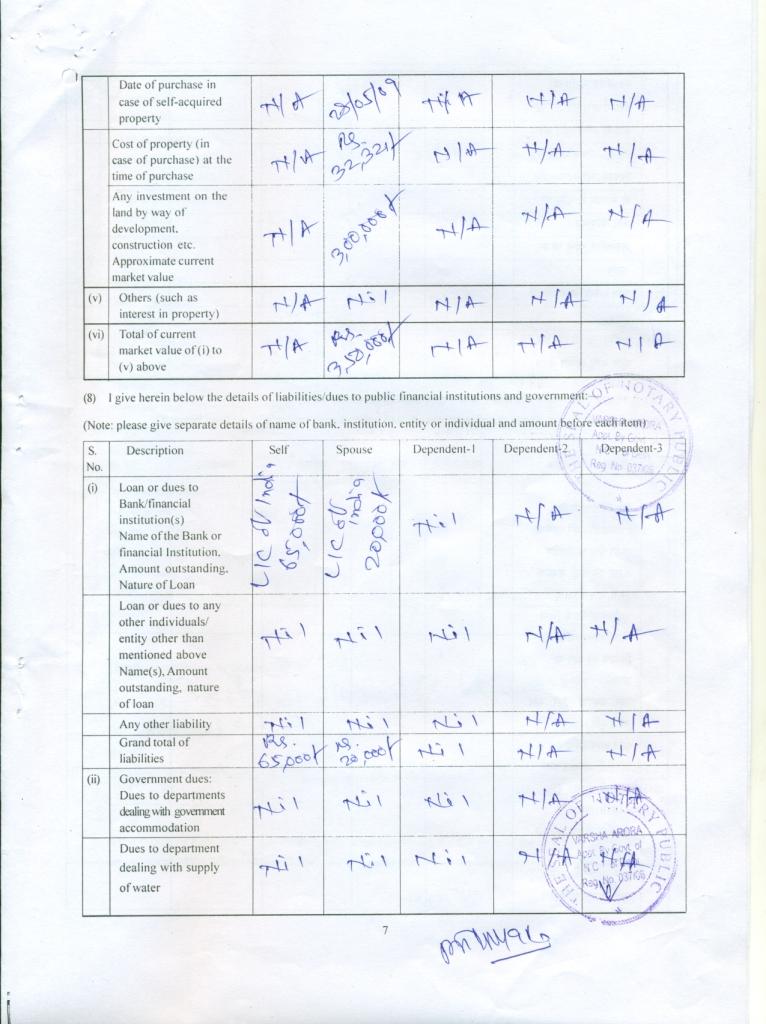 Date of purchase in
case of self-acquired
property
N/A 28/05/09 N/A N/A N/A
Cost of property (in
case of purchase) at the
time of purchase
N/A Rs. 32,321/- N/A N/A N/A
Any investment on the
land by way of
development,
construction etc.
Approximate current
market value
N/A 3,00,000/- N/A N/A N/A
(v) Others (such as
interest in property)
N/A Nil N/A N/A N/A
(vi) Total of current
market value of (i) to
(v) above
N/A Rs. 3,50,000/- N/A N/A N/A
(8) I give herein below the details of liabilities/dues to public financial institutions and government:
(Note: please give separate details of name of bank, institution, entity or individual and amount before each item)
S. No. Description Self Spouse Dependent-1 Dependent-2 Dependent-3
(i) Loan or dues to
Bank/financial
institution(s)
Name of the Bank or
financial Institution,
Amount outstanding,
Nature of Loan
LIC of India 65,000/- LIC of India 20,000/- Nil N/A N/A
Loan or dues to any
other individuals/
entity other than
mentioned above
Name(s), Amount
outstanding, nature
of loan
Nil Nil Nil N/A N/A
Any other liability Nil Nil Nil N/A N/A
Grand total of
liabilities
Rs. 65,000/- Rs. 20,000/- Nil N/A N/A
(ii) Government dues:
Dues to departments
dealing with government
accommodation
Nil Nil Nil N/A N/A
Dues to department
dealing with supply
of water
Nil Nil Nil N/A N/A
THE SEAL OF NOTARY PUBLIC
VARSHA ARORA
Appt. By Govt. of
Reg. No. 037/06
THE SEAL OF NOTARY PUBLIC
VARSHA ARORA
Appt. By Govt. of
Reg. No. 037/06
7